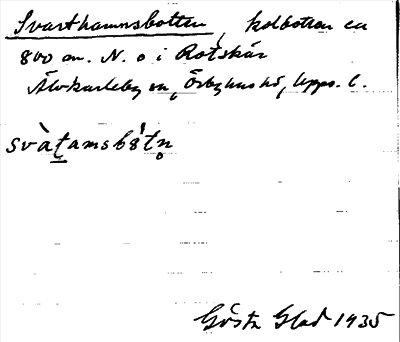 Svarthamnsbotten, kolbotten ca
800 m. N. o i Rotskär
Älvkarleby sn, Örbyhus hd, Upps. l.
svàt̠amsbát̠n̥
Gösta Glad 1935